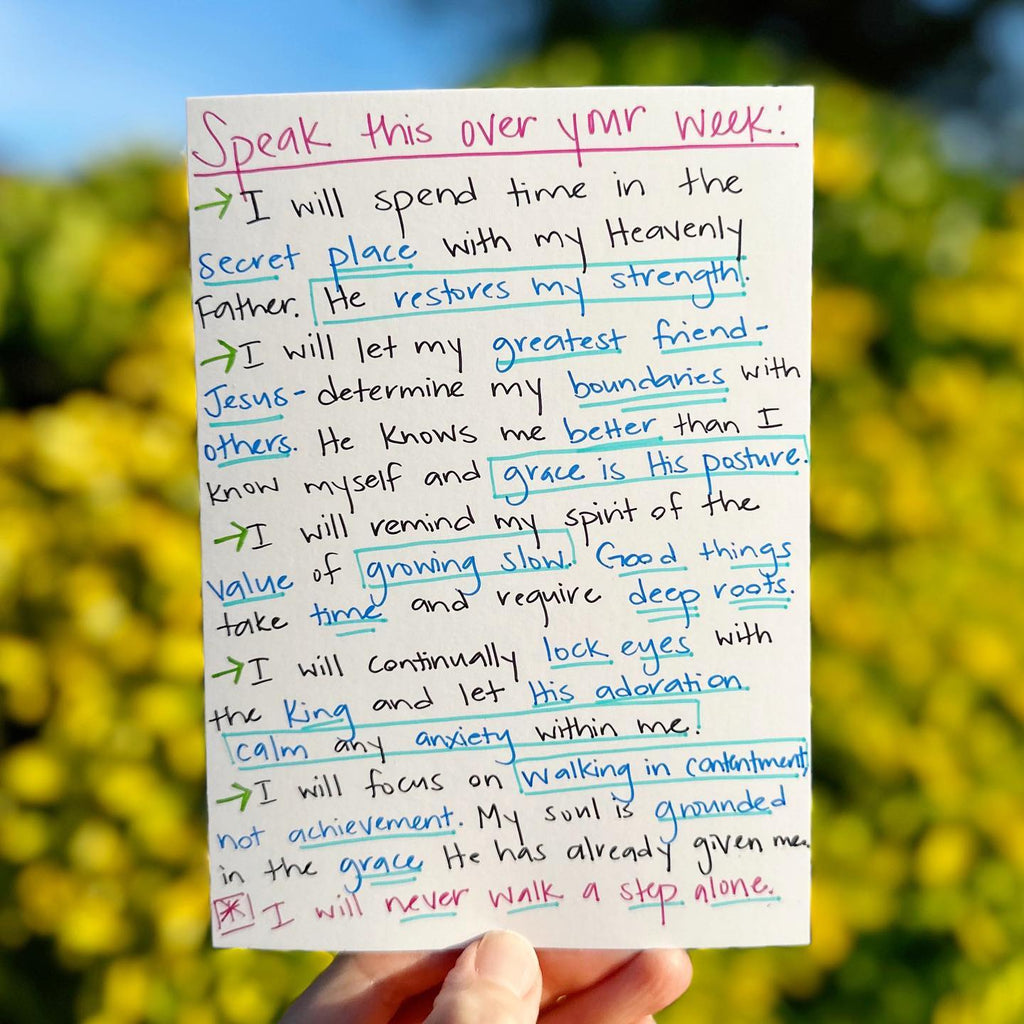 Speak this over your week:
→ I will spend time in the
secret place with my Heavenly
Father. He restores my strength.
→ I will let my greatest friend-
Jesus- determine my boundaries with
others. He knows me better than I
know myself and grace is His posture.
→ I will remind my spirit of the
value of growing slow. Good things
take time and require deep roots.
→ I will continually lock eyes with
the King and let His adoration
calm any anxiety within me.
→ I will focus on walking in contentment,
not achievement. My soul is grounded
in the grace He has already given me.
* I will never walk a step alone.